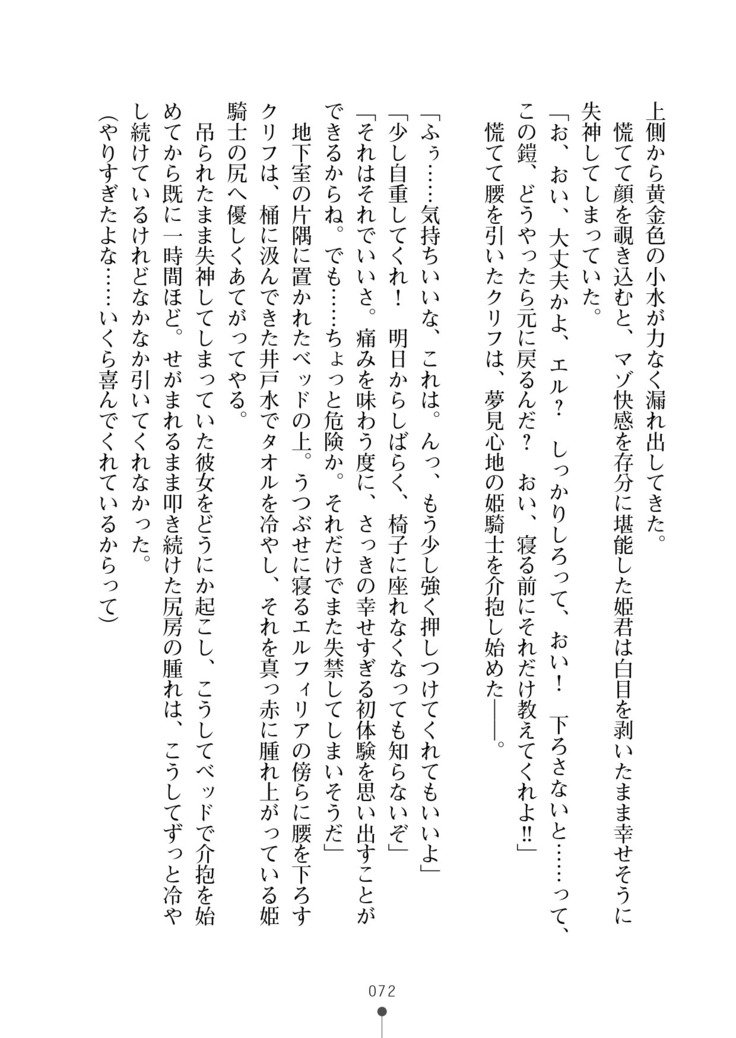 上側から黄金色の小水が力なく漏れ出してきた。
　慌てて顔を覗き込むと、マゾ快感を存分に堪能した姫君は白目を剥いたまま幸せそうに
失神してしまっていた。
「お、おい、大丈夫かよ、エル？　しっかりしろって、おい！　下ろさないと……って、
この鎧、どうやったら元に戻るんだ？　おい、寝る前にそれだけ教えてくれよ‼」
　慌てて腰を引いたクリフは、夢見心地の姫騎士を介抱し始めた――。
「ふぅ……気持ちいいな、これは。んっ、もう少し強く押しつけてくれてもいいよ」
「少し自重してくれ！　明日からしばらく、椅子に座れなくなっても知らないぞ」
「それはそれでいいさ。痛みを味わう度に、さっきの幸せすぎる初体験を思い出すことが
できるからね。でも……ちょっと危険か。それだけでまた失禁してしまいそうだ」
　地下室の片隅に置かれたベッドの上。うつぶせに寝るエルフィリアの傍らに腰を下ろす
クリフは、桶に汲んできた井戸水でタオルを冷やし、それを真っ赤に腫れ上がっている姫
騎士の尻へ優しくあてがってやる。
　吊られたまま失神してしまっていた彼女をどうにか起こし、こうしてベッドで介抱を始
めてから既に一時間ほど。せがまれるまま叩き続けた尻房の腫れは、こうしてずっと冷や
し続けているけれどなかなか引いてくれなかった。
（やりすぎたよな……いくら喜んでくれているからって）
072